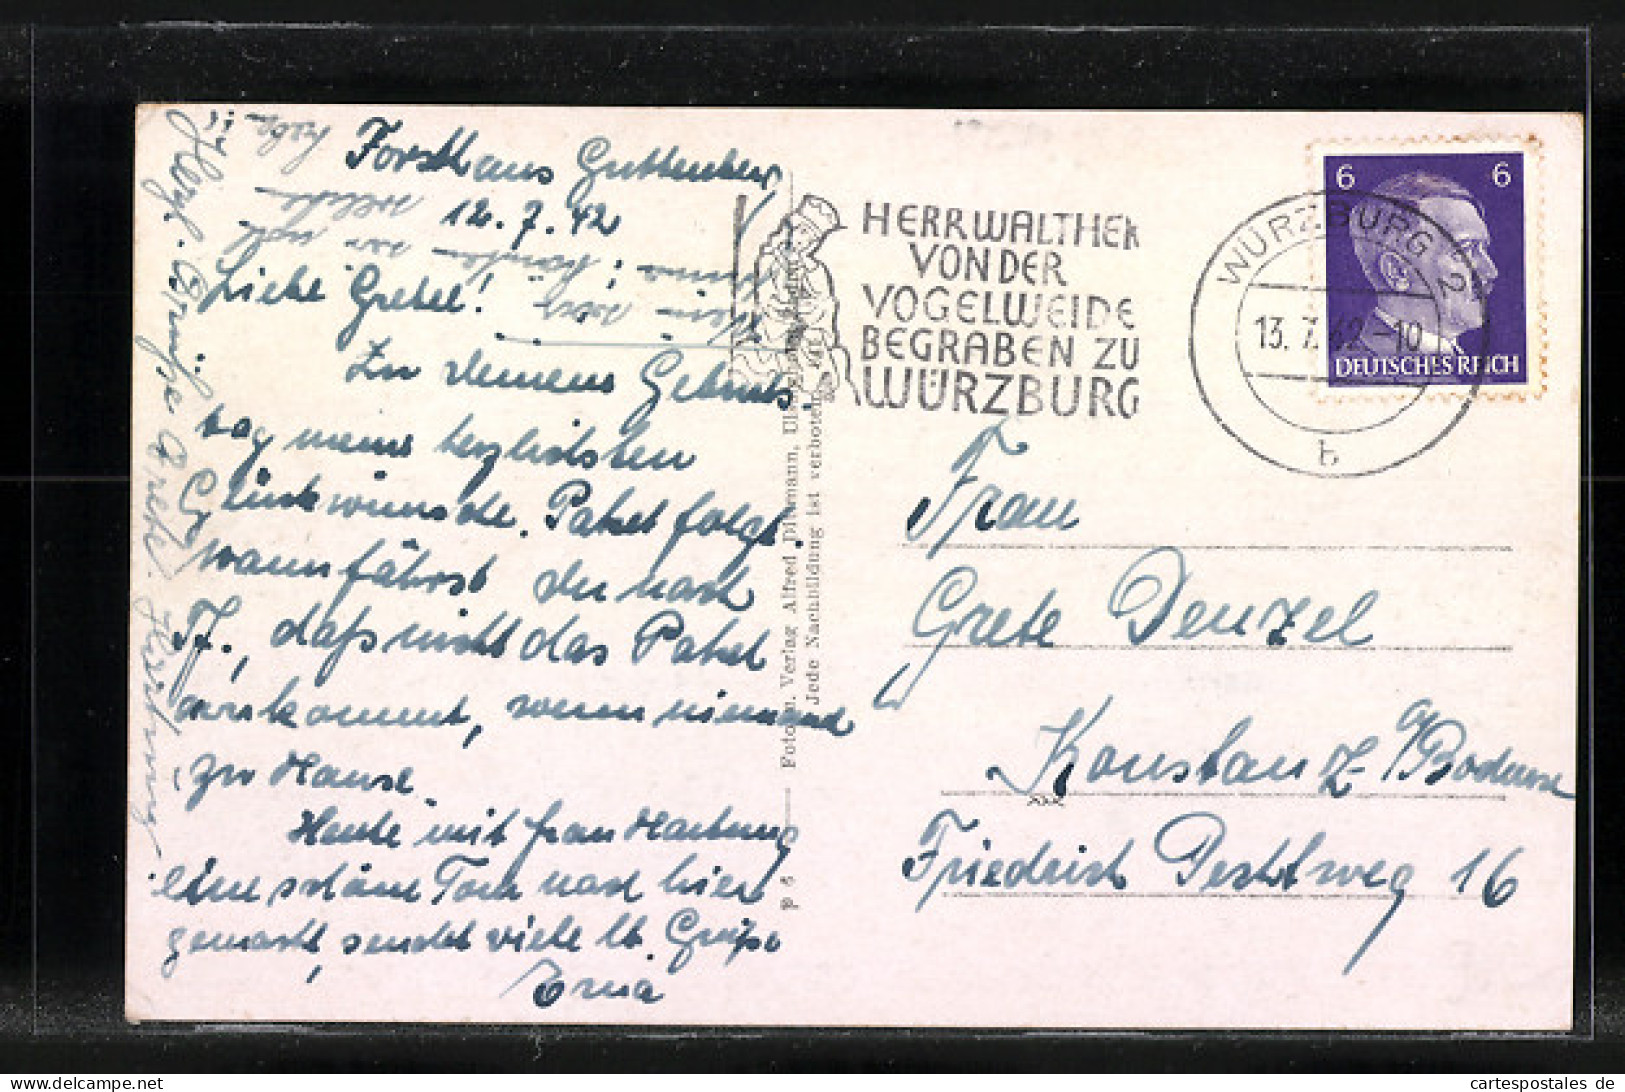 Forsthaus Guttenberg
12.7.42
Liebe Gretel!
Zu deinem Geburts
tag meine herzlichsten
Glückwünsche. Paket folgt.
wann fährst du nach
F., daß nicht das Paket
ankommt, wenn niemand
zu Hause.
Heute mit Frau Hartung
eine schöne Tour nach hier
gemacht, sendet viele lb. Grüße
Erna
Herzl. Grüße Grete Hartung
HERR WALTHER
VON DER
VOGELWEIDE
BEGRABEN ZU
WÜRZBURG
WÜRZBURG 2
13.7.42-10
b
6 6
DEUTSCHES REICH
Frau
Grete Denzel
Konstanz a/Bodensee
Friedrich Pechtweg 16
Verlag Alfred Dittmann,
Jede Nachbildung ist verboten
P 6
cartespostales de